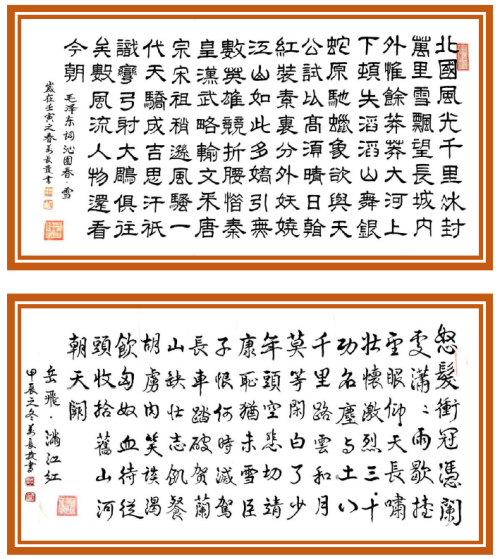 北國風光千里冰封
萬里雪飄望長城内
外惟餘莽莽大河上
下頓失滔滔山舞銀
蛇原馳蠟象欲與天
公試比高須晴日看
紅裝素裹分外妖嬈
江山如此多嬌引無
數英雄競折腰惜秦
皇漢武略輸文采唐
宗宋祖稍遜風騷一
代天驕成吉思汗祇
識彎弓射大鵰俱往
矣數風流人物還看
今朝
毛澤东詞沁園春·雪
歲在壬寅之春長書
怒髮衝冠憑闌
處瀟〻雨歇抬
望眼仰天長嘯
壯懷激烈三十
功名塵与土八
千里路雲和月
莫等閑白了少
年頭空悲切靖
康恥猶未雪臣
子恨何時滅駕
長車踏破贺蘭
山缺壮志飢餐
胡虜肉笑談渴
飲匈奴血待從
頭收拾舊山河
朝天闕
岳飛·滿江紅
甲辰之冬長書